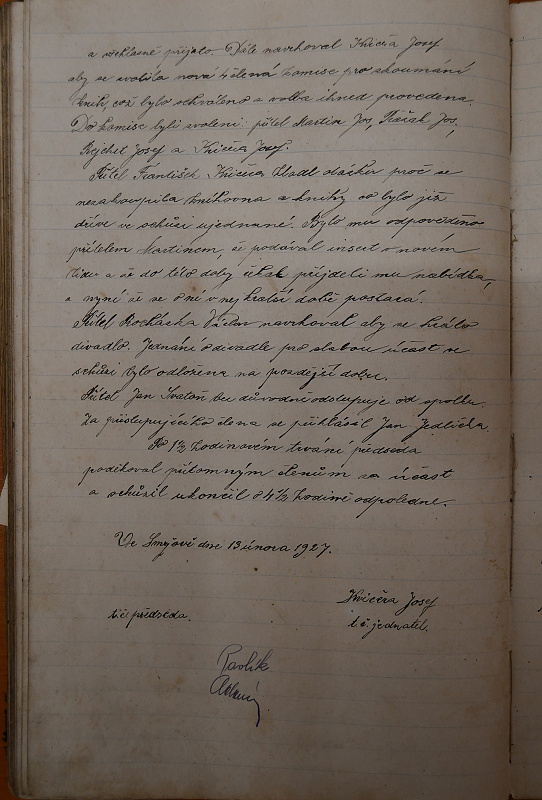 a všehlasně přijato. Dále navrhoval Kvičera Josef
aby se zvolila nová 4 členná komise pro zkoumání
knih, což bylo schváleno a volba ihned provedena.
Do komise byli zvoleni: přítel Martin Jos, Jos,
Rejchrt Josef a Kvičera Josef.
Přítel František Kvičera kladl otázku proč se
nezakoupila knihovna a knihy co bylo již
dříve ve schůzi ujednané. Bylo mu odpovězeno
přítelem Martinem, že podával insert v novém
lidu a že do této doby čekal přijdeli mu nabídka,
a nyní že se o ní v nejkratší době postará.
Přítel Procházka navrhoval aby se hrálo
divadlo. Jednání o divadle pro slabou účast ve
schůzi bylo odložena na pozdější dobu.
Přítel Jan Svatoň bez důvodní odstupuje od spolku.
Za přistupujícího člena se přihlásil Jan Jedlička.
Po 1½ hodinovém trvání předseda
poděkoval přítomným členům za účast
a schůzi ukončil o 4½ hodině odpoledne.
Ve dne 13 února 1927.
Kvičera Josef
t. č. předseda. t. č. jednatel.
Pavlík